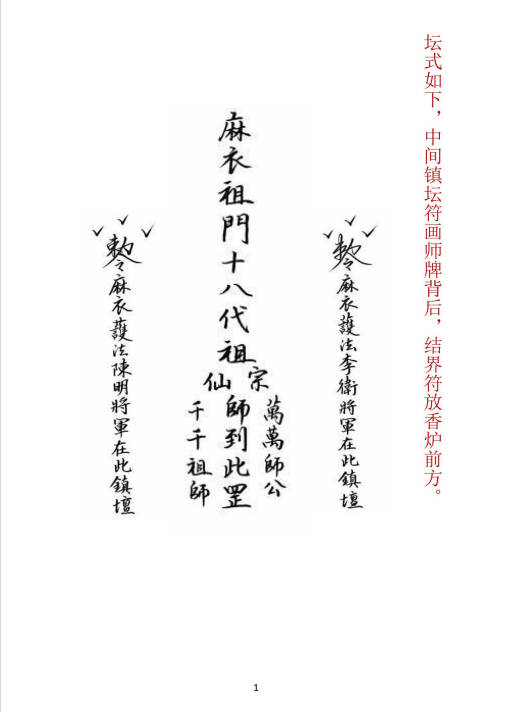 坛式如下，中间镇坛符画师牌背后，结界符放香炉前方。
敕令麻衣護法李衛將軍在此鎮壇
麻衣祖門十八代祖
宗
仙
師到此罡
萬萬師公
千千祖師
敕令麻衣護法陳明將軍在此鎮壇
1